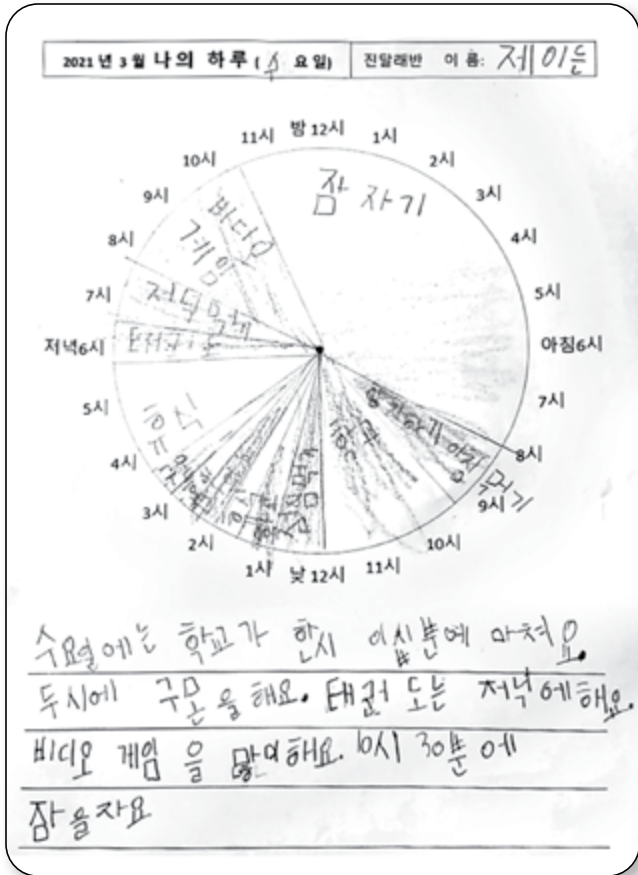 2021 년 3 월 나의 하루 ( 수 요일) 진달래반 이 름: 제이든
밤 12시
1시
2시
3시
4시
5시
아침6시
7시
8시
9시
10시
11시
낮 12시
1시
2시
3시
4시
5시
저녁6시
7시
8시
9시
10시
11시
잠 자기
비디오
게임
저녁 먹기
태권도
휴식
학교
아침 먹기
수요일에는 학교가 한시 이십분에 마쳐요.
두시에 구몬을 해요. 태권도는 저녁에 해요.
비디오 게임을 많이해요. 10시 30분에
잠을자요